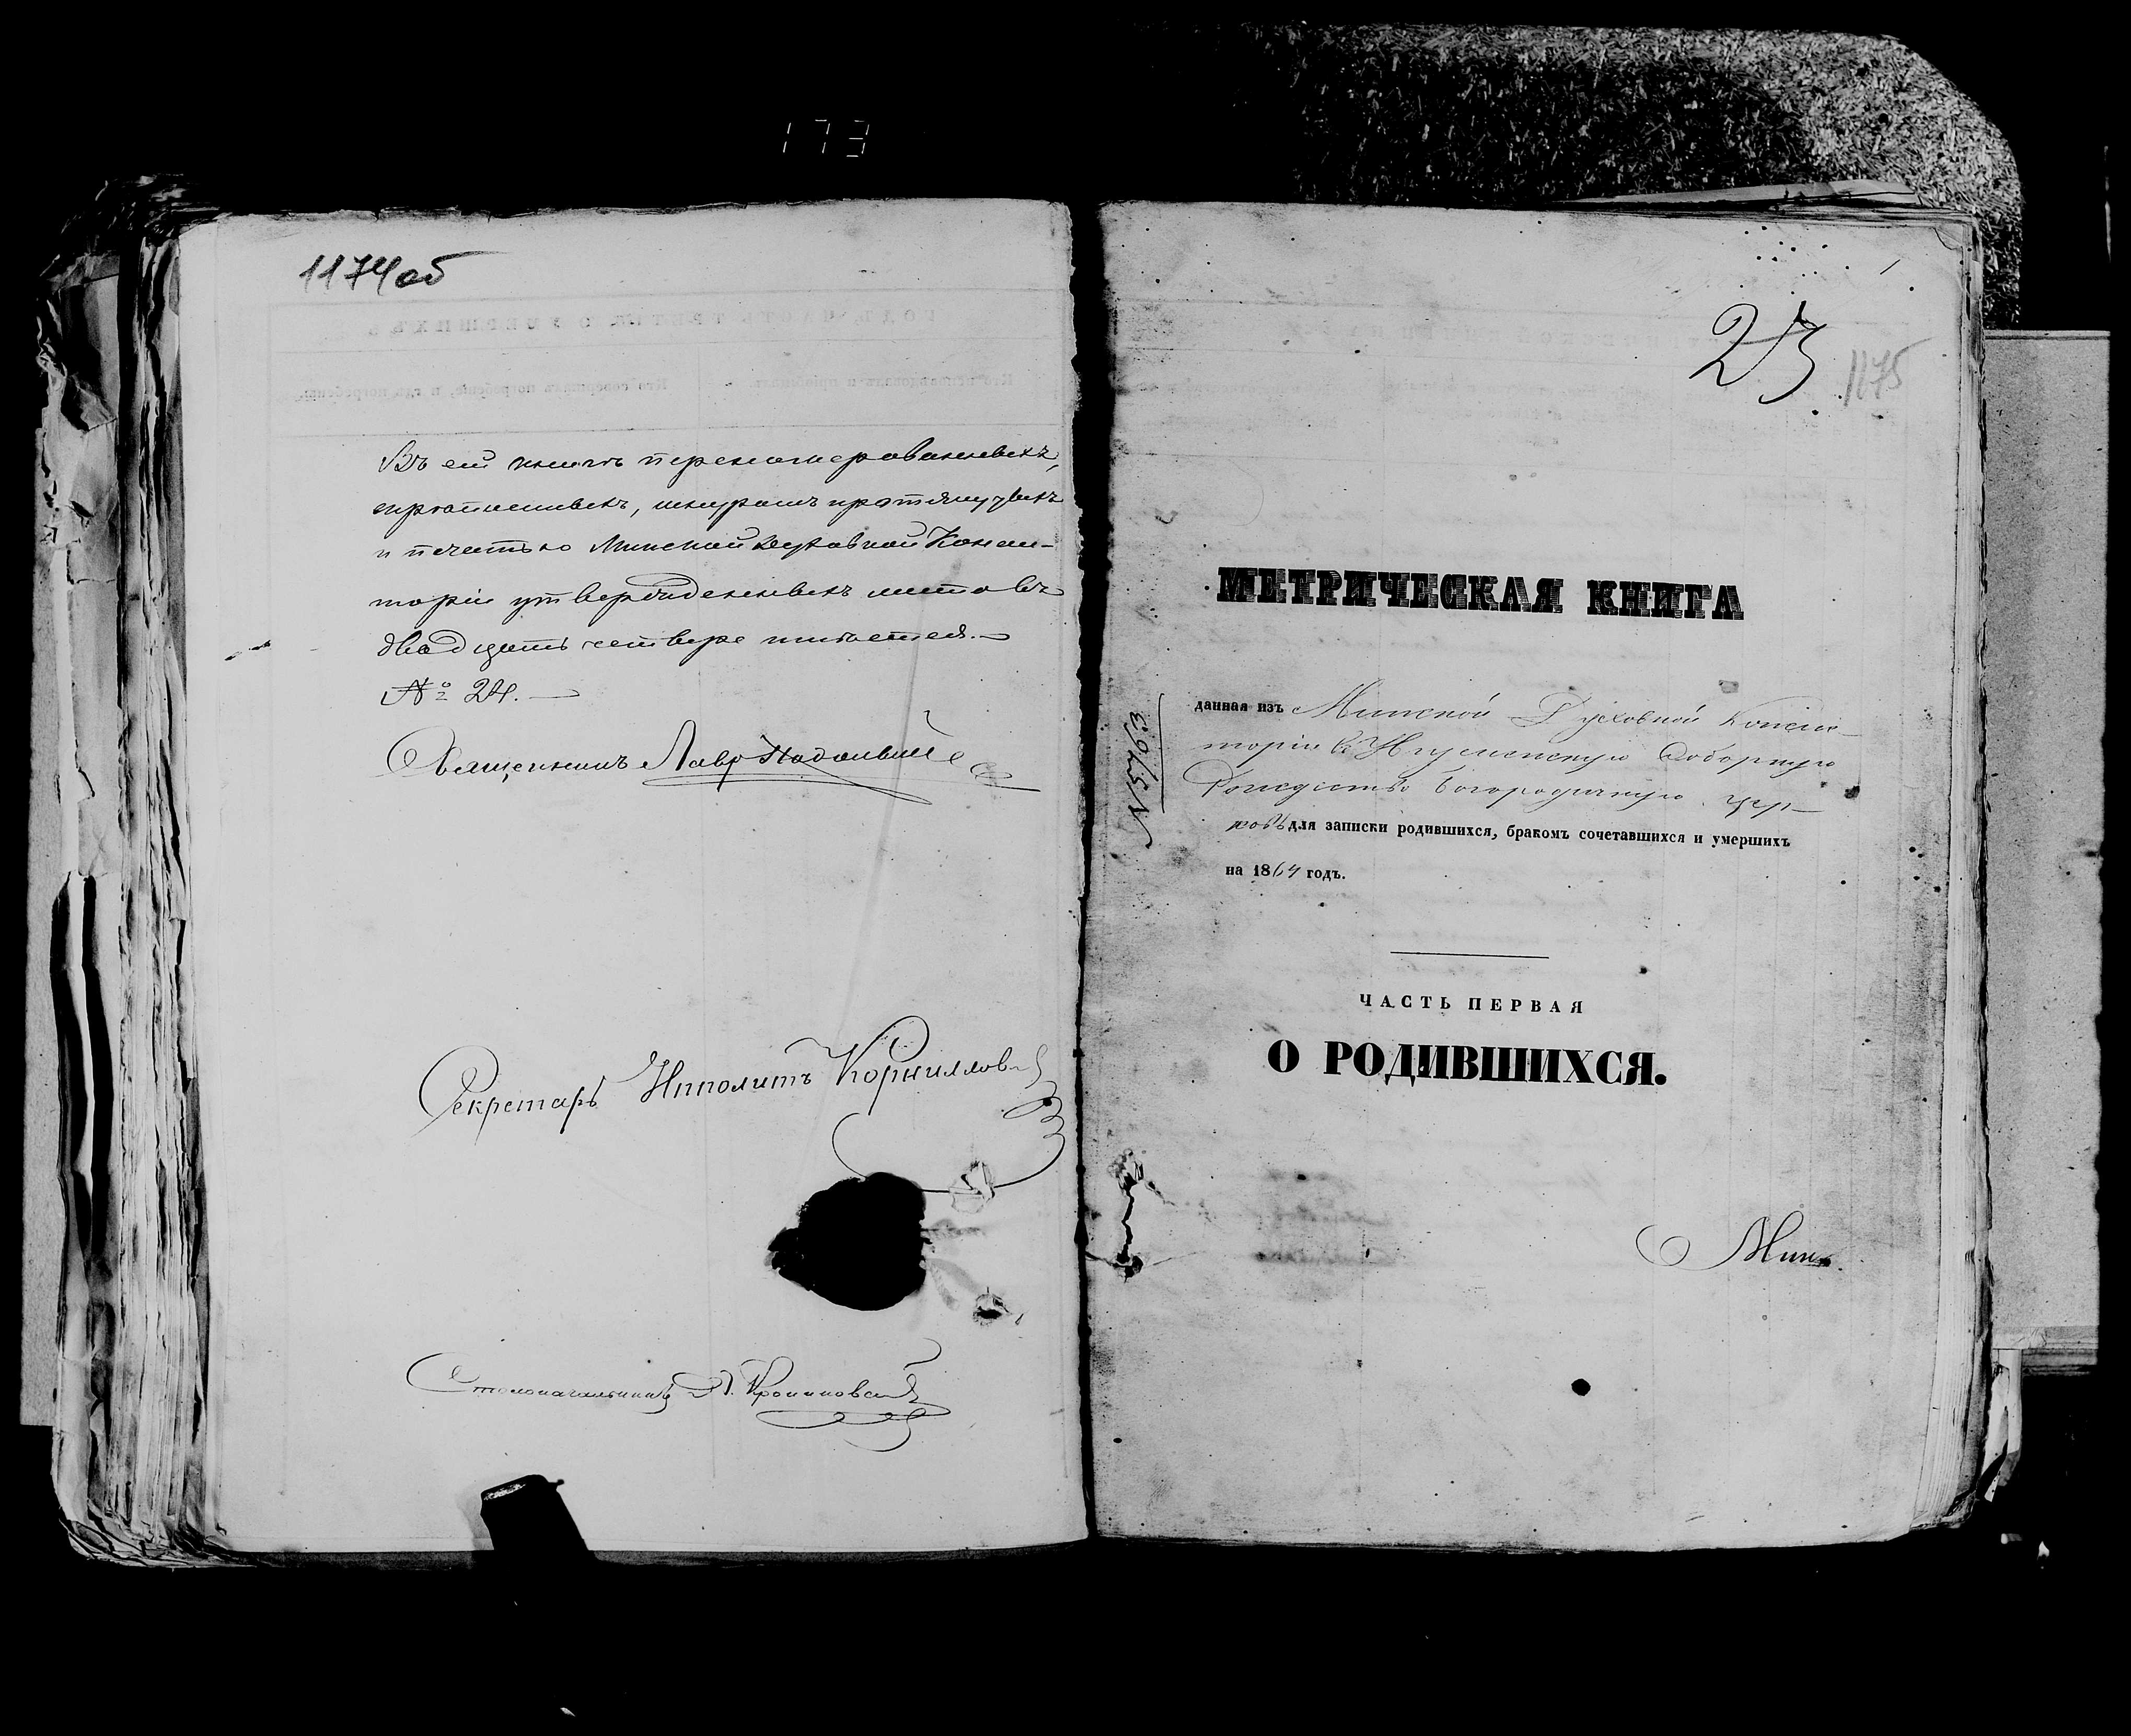 173
1174об
Въ сей книгѣ переномерованныхъ,
шнуромъ
и печатью Минской Духовной Конси-
торіи утвержденныхъ листовъ
двадцать четыре имѣется.—
№ 24.—
Священникъ Лавр
Секретарь Ипполитъ Корниллов
Столоначальникъ
1
23
1175
МЕТРИЧЕСКАЯ КНИГА
данная изъ Минской Духовной Конси-
торіи въ Игуменскую Соборную
Рождество Богородичную цер-
ковь для записки родившихся, бракомъ сочетавшихся и умершихъ
на 1864 годъ.
ЧАСТЬ ПЕРВАЯ
О РОДИВШИХСЯ.